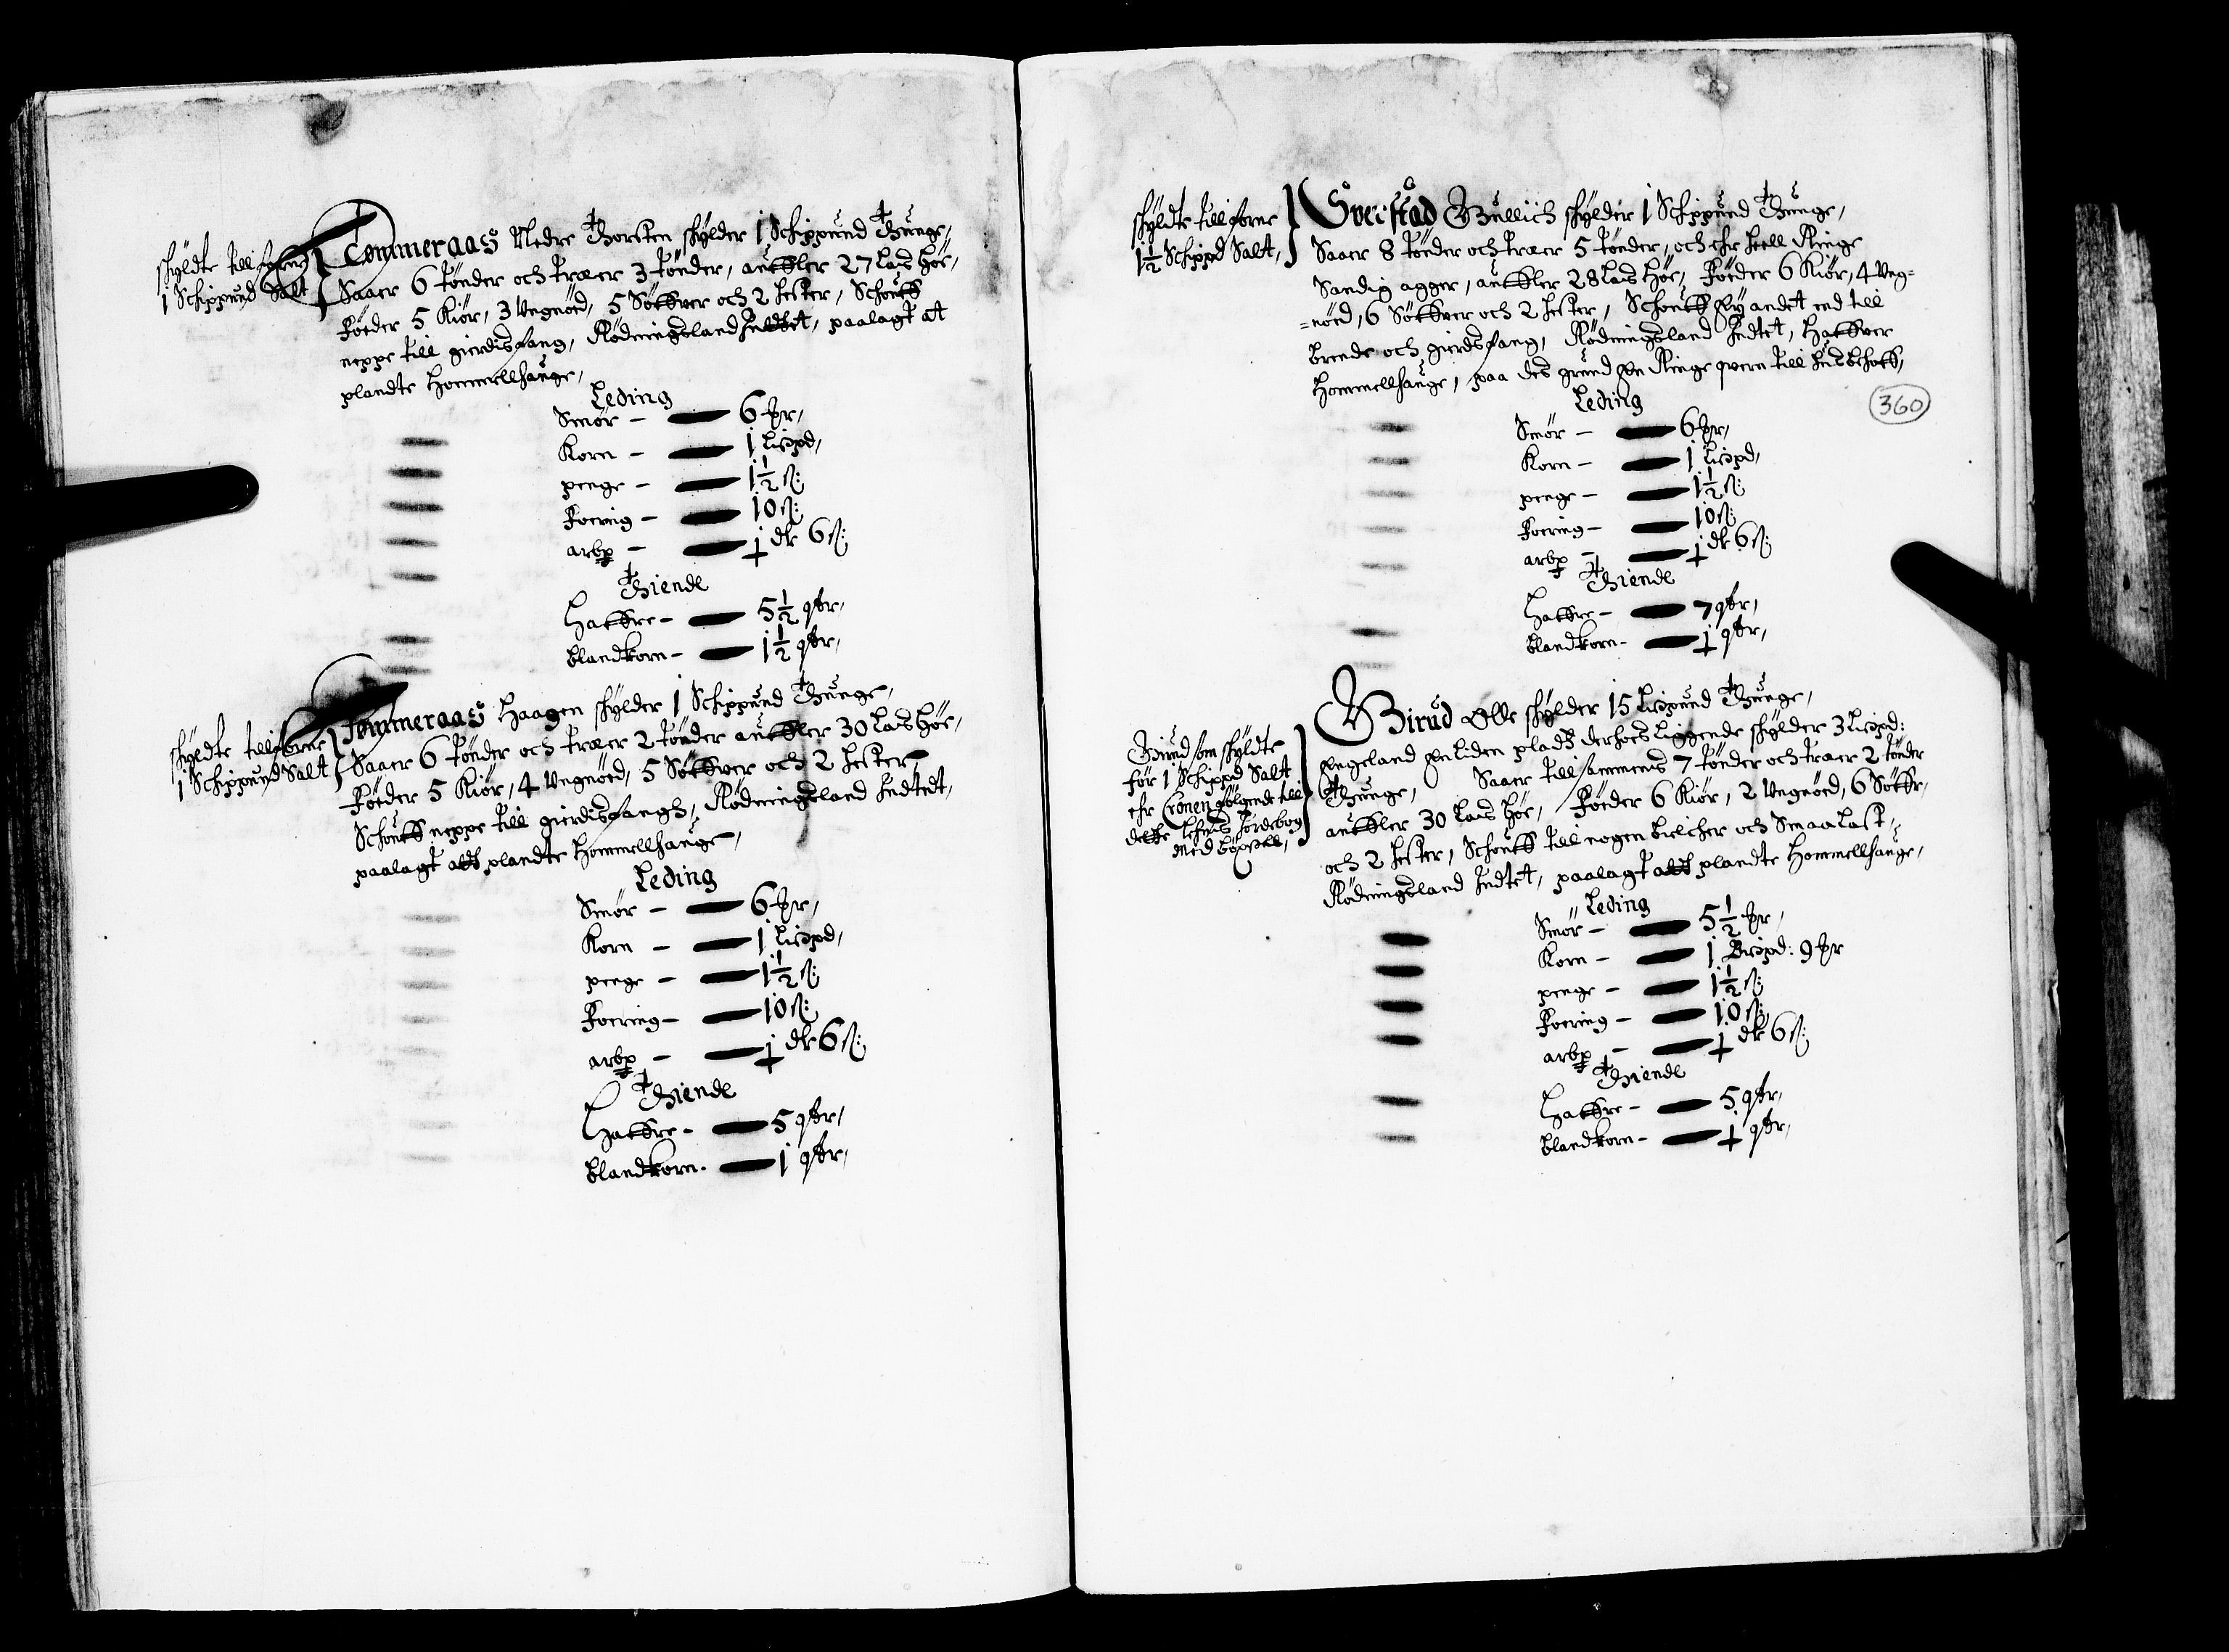 skyldte tillforne
1 Schippund Salt
Tommeraas Nedre Thorsten skylder 1 Schippund Thunge,
Saaer 6 tønder och træer 3 tønder, auffler 27 lass høe,
Føeder 5 Kiør, 3 Ungnød, 5 Søffver och 2 hester, Schouff
neppe till gierdisfang, Rødningsland Indtet, paalagt at
plandte hommellhauge,
Leding
Smør – 6 ʒr,
Korn – 1 lispd,
penge – 1½ ß:
Foering – 10 ß:
arbp – 1 dlr 6 ß:
Thiende
Haffre – 5½ qtr,
blandkorn – 1½ qtr,
skyldte tillforne
1 Schippund Salt
Tommeraas Haagen skylder 1 Schippund Thunge,
Saaer 6 tønder och træer 2 tønder auffler 30 lass høe,
Føeder 5 Kiør, 4 Ungnød, 5 Søffver och 2 hester,
Schouff neppe till gierdisfangh, Rødningsland Indtedt,
paalagt att plandte hommellhauge,
Leding
Smør – 6 ʒr,
Korn – 1 lispd,
penge – 1½ ß:
Foering – 10 ß:
arbp – 1 dlr 6 ß:
Thiende
Haffre – 5 qtr,
blandkorn – 1 qtr,
skyldte tillforne
1½ Schippd Salt,
Sveistad Gullich skylder 1 Schippund Thunge,
Saaer 8 tønder och træer 5 tønder, och ehr heell Ringe
Sandig agger, auffler 28 lass høe, Føeder 6 Kiør, 4 Ung=
=nød, 6 Søffver och 2 hester, Schouff ey andet end till
brende och gierdsfang, Rødningsland Indtet, haffver
hommellhauge, paa des grund en Ringe qvern till husbehoff,
360
Leding
Smør – 6 ʒr,
Korn – 1 lispd,
penge – 1½ ß:
Foering – 10 ß:
arbp – 1 dlr 6 ß:
Thiende
Haffre – 7 qtr,
blandkorn – 1 qtr,
som skyldte
for 1 Schippd Salt
ehr Cronen følgende till
dette lehns Jordebog
med böxsell,
Birud Olle skylder 15 Lispund Thunge,
Engeland en liden pladtz derhoes liggende skylder 3 Lispd:
Thunge, Saaer till sammens 7 tønder och træer 2 tønder
auffler 30 lass høe, Føeder 6 Kiør, 2 Ungnød, 6 Søffr,
och 2 hester, Schouff till nogen bielcher och Smaalast,
Rødningsland Indtet, paalagt att plandte hommellhauge,
Leding
Smør – 5½ ʒr,
Korn – 1 Bispd: 9 ʒr
penge – 1½ ß:
Foering – 10 ß:
arbp – 1 dlr 6 ß:
Thiende
Haffre – 5 qtr,
blandkorn – 1 qtr,